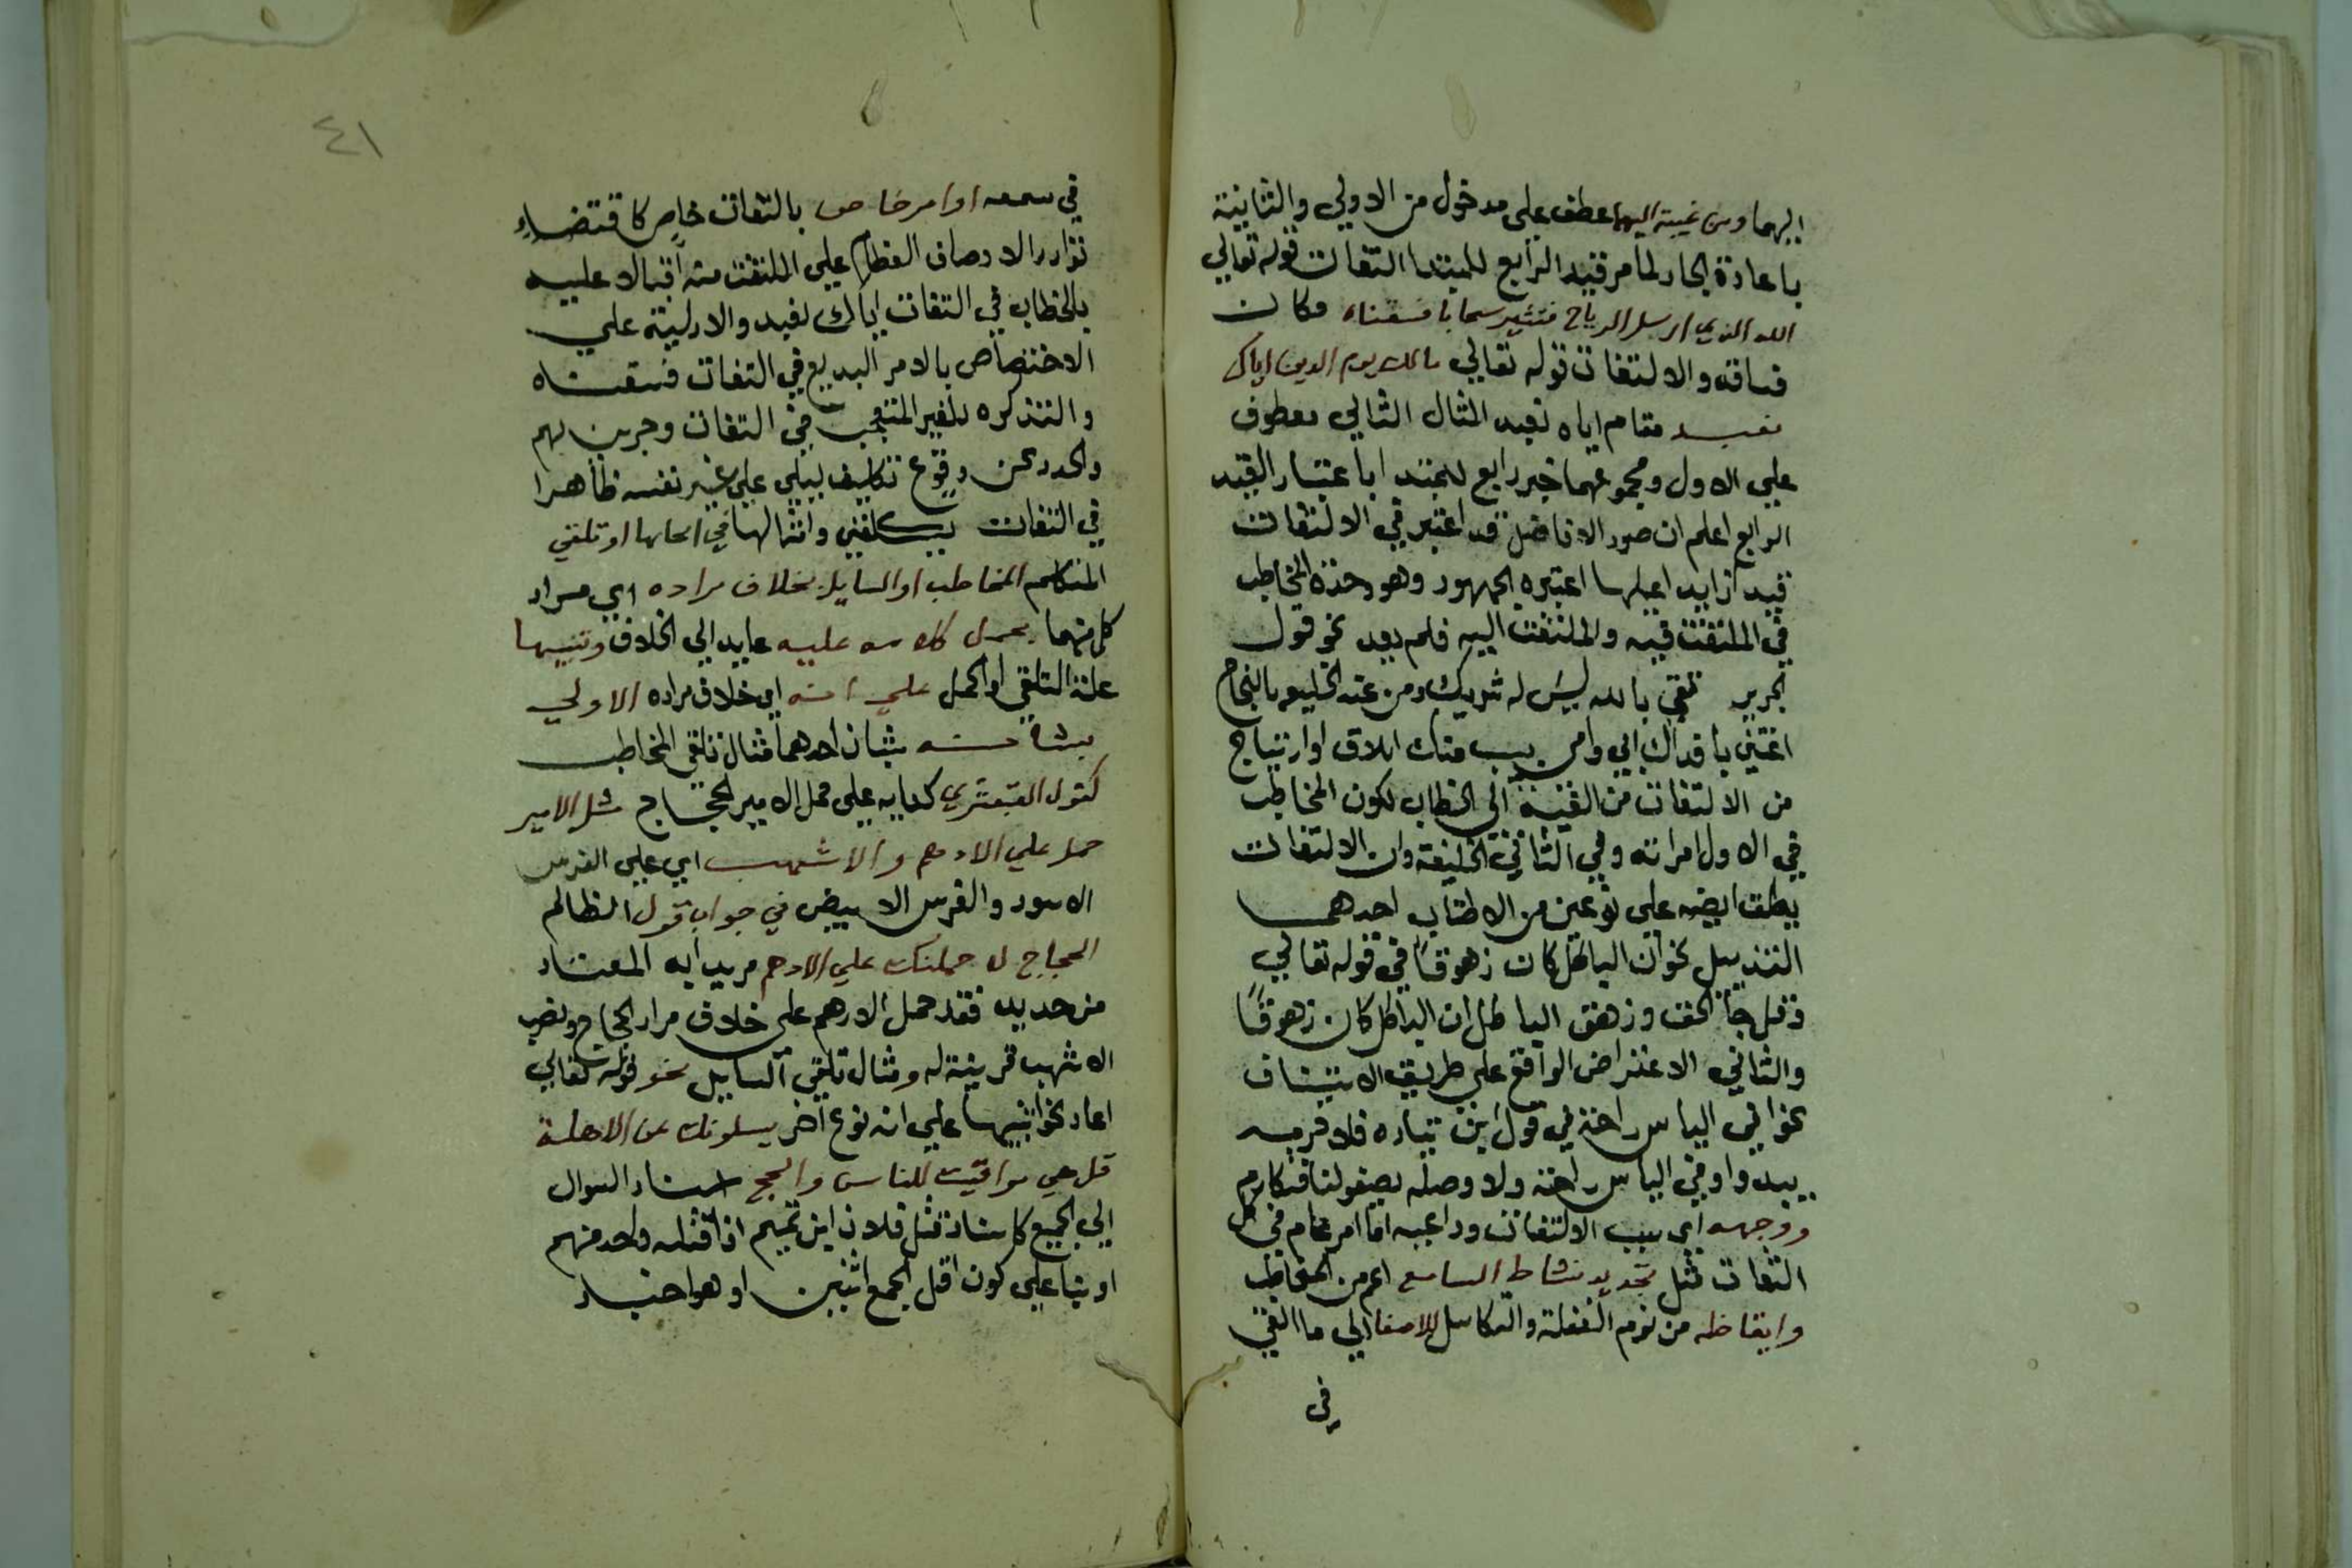 اليهما ومن غيبة اليهما عطف على مدخول من الاولي والثانية
باعادة الجار لما مر قيد الرابع للمبتدا التفات قوله تعالي
الله الذي ارسل الرياح فتثير سحابا فسقناه مكان
فساقه والالتفات قوله تعالي مالك يوم الدين اياك
نعبد مقام اياه نعبد المثال الثالي معطوف
علي الاول ومجموعهما خبر رابع للمبتدا باعتبار القيد
الرابع اعلم ان صدر الافاضل قد اعتبر في الالتفات
قيدا زايدا علي ما اعتبره الجمهور وهو وحدة المخاطب
في الملتفت فيه والملتفت اليه فلم يعد نحو قول
الجرير ثقي بالله ليس له شريك ومن عند الخليفة بالنجاح
اغثني يا فداك ابي وامي بسيب منك
من الالتفات من الغيبة الي الخطاب لكون المخاطب
في الاول امراته وفي الثاني الخليفة وان الالتفات
يطلق ايضه علي نوعين من الاطناب احدهما
التذييل نحو ان الباطل كان زهوقا في قوله تعالي
وقل جا الحق وزهق الباطل ان الباطل كان زهوقا
والثاني الاعتراض الواقع علي طريق الاستيناف
نحو وفي الياس راحة في قول ابن مياده فلا صرمه
يبدوا وفي الياس راحة ولا وصله يصفو لنا فنكارم
ووجهه اي سبب الالتفات وداعيه اما امر عام في كل
التفات مثل تجديد نشاط السامع اعم من المخاطب
وايقاظه من نوم الغفلة والتكاسل للاصغا الي ما القي
في
٤١
في سمعه او امر خاص بالتفات خاص كاقتضاء
توارد الاوصاف العظام علي الملتفت منه اقبالا عليه
بالخطاب في التفات اياك نعبد والادلية علي
الاختصاص بالامر البديع في التفات فسقناه
والتذكره للغير المتعجب في التفات وجرين بهم
والحدد عن وقوع تكليف ليلي علي غير نفسه ظاهرا
في التفات يكلفني وامثالها في امثالها او تلقي
المتكلم المخاطب او السايل بخلاف مراده اي مراد
كل منهما بحمل كلامه عليه عايد الي الخلاف وتنبيها
علة التلقي او الحمل علي انه اي خلاف مراده الاولي
بشانه بشان احدهما مثال تلقي المخاطب
كقول القبعثري علي محمل الامير الحجاج مثل الامير
حمل علي الادهم والاشهب اي علي الفرس
الاسود والفرس الابيض في جواب قول الظالم
الحجاج لاحملنك علي الادهم مريدا به المعتاد
من حديد فقد حمل الادهم علي خلاف مراد الحجاج ونصب
الاشهب قرينة له ومثال تلقي السايل نحو قوله تعالي
اعاد نحو تنبيها علي انه نوع اخر يسلونك عن الاهلة
قل هي مواقيت للناس والحج اسناد السوال
الي الجميع كاسناد قتل فلان ابن تميم اذا قتله واحد منهم
او بنا علي كون اقل الجمع اثنين او هو اختيار